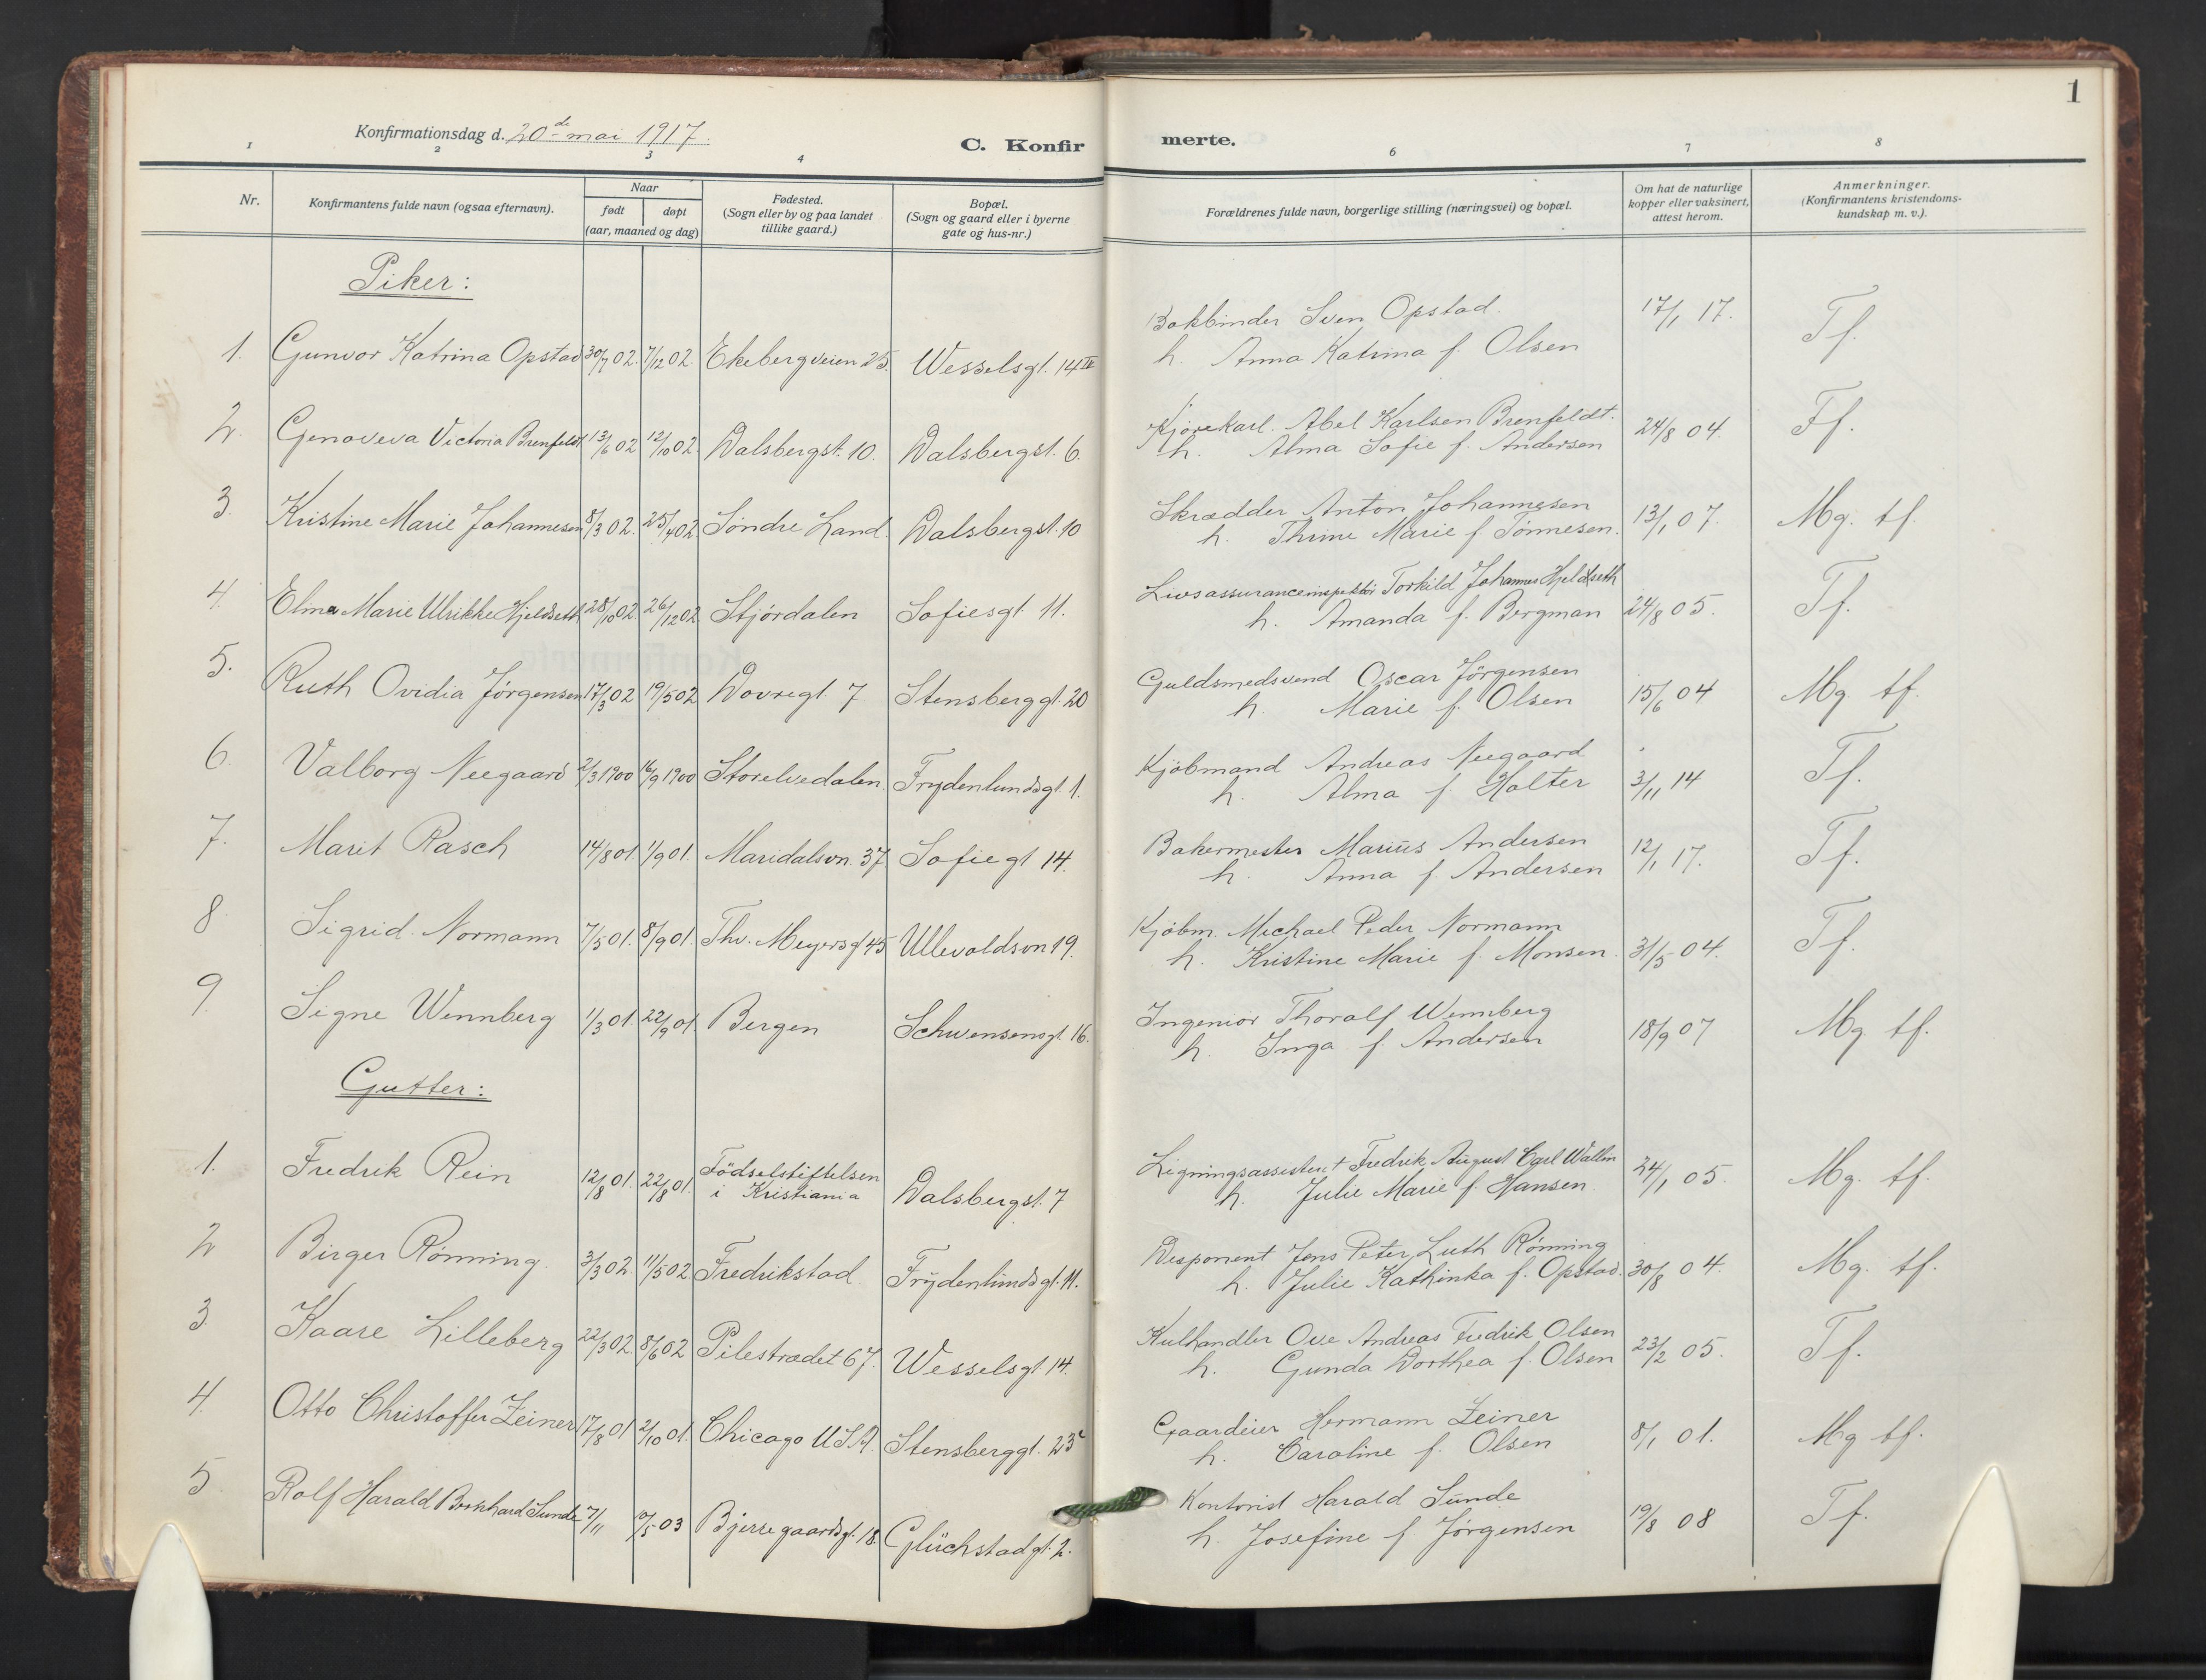 1
Konfirmationsdag d. 20de mai 1917.
C. Konfir merte.
1 2 3 4 6 7 8
Nr.
Konfirmantens fulde navn (ogsaa efternavn).
Naar
født døpt
(aar, maaned og dag)
Fødested.
(Sogn eller by og paa landet
tillike gaard.)
Bopæl.
(Sogn og gaard eller i byerne
gate og hus-nr.)
Forældrenes fulde navn, borgerlige stilling (næringsvei) og bopæl.
Om hat de naturlige
kopper eller vaksinert,
attest herom.
Anmerkninger.
(Konfirmantens kristendoms-
kundskap m. v.).
Piker:
1. Gunvor Katrina Opstad 30/7 02. 7/12 02. Ekebergveien 25. Wesselsgt. 14 IV Bokbinder Sven Opstad. 17/1 17. Tf.
h. Anna Katrina f. Olsen
2. Genoveva Victoria Brenfeldt 13/6 02 12/10 02. Dalsbergst. 10. Dalsbergst. 6. Kjørekarl. Abel Karlsen Brenfeldt. 24/8 04. Tf.
h. Alma Sofie f. Andersen
3. Kristine Marie Johannesen 8/3 02. 25/4 02. Søndre Land. Dalsbergst. 10 Skrædder Anton Johannesen 13/1 07. Mg. tf.
h. Thrine Marie f. Tønnesen.
4. Elma Marie Ulrikke Hjeldseth 28/10 02. 26/12 02. Stjørdalen Sofiesgt. 11. Livsassuranceinspektør Torkild Johannes Hjeldseth 24/8 05. Tf.
h. Amanda f. Bergman
5. Ruth Ovidia Jørgensen 17/3 02 19/5 02 Dovregt. 7 Stensberggt. 20 Guldsmedsvend Oscar Jørgensen 15/6 04 Mg tf.
h. Marie f. Olsen
6. Valborg Neegaard 2/3 1900 16/9 1900 Storelvedalen. Frydenlundsgt. 1. Kjøbmand Andreas Neegaard 3/11 14 Tf.
h. Alma f. Holter
7. Marit Rasch 14/8 01. 1/9 01. Maridalsvn. 37. Sofiegt 14. Bakermester Marius Andersen 12/1 17. Tf.
h. Anna f. Andersen
8 Sigrid Normann 7/5 01. 8/9 01. Thv. Meyersgt 45 Ullevoldsvn 19. Kjøbm. Michael Peder Normann 31/5 04. Tf.
h. Kristine Marie f. Monsen.
9. Signe Wennberg 1/3 01. 22/9 01. Bergen Schwensensgt. 16. Ingeniør Thoralf Wennberg 18/9 07 Mg tf.
h. Inga f. Andersen
Gutter:
1. Fredrik Rein 12/8 01. 22/8 01. Fødselstiftelsen i Kristiania Dalsbergst. 7 Ligningsassistent Fredrik August Carl Wallin 24/1 05. Mg. tf.
h. Julie Marie f. Hansen
2 Birger Rønning. 3/3 02. 11/5 02. Fredrikstad. Frydenlundsgt. 11. Disponent Jens Peter Luth Rønning 30/8 04. Mg. tf.
h. Julie Kathinka f. Opstad.
3 Kaare Lilleberg 22/3 02. 8/6 02 Pilestrædet 67. Wesselsgt. 14. Kulhandler Ove Andreas Fredrik Olsen 23/2 05. Tf.
h. Gunda Dorthea f. Olsen
4. Otto Christoffer Zeiner 17/8 01 2/10 01. Chicago U.S.A. Stensberggt. 23 Gaardeier Hermann Zeiner 8/1 01. Mg tf.
h. Caroline f. Olsen
5 Rolf Harald Sunde 7/11 /5 03 Bjerregaardsgt. 18. Glückstadgt. 2. Kontorist Harald Sunde 19/8 08 Tf.
h. Josefine f. Jørgensen